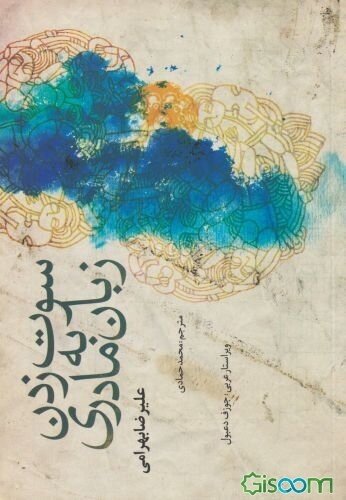 سوت زدن
به
زبان مادری
علیرضا بهرامی
مترجم: محمد حمادی
ویراستار عربی: جوزف دعبول
Gisoom
.com